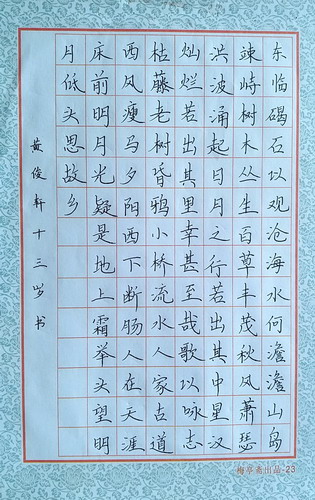 东临碣石以观沧海水何澹澹山岛
竦峙树木丛生百草丰茂秋风萧瑟
洪波涌起日月之行若出其中星汉
灿烂若出其里幸甚至哉歌以咏志
枯藤老树昏鸦小桥流水人家古道
西风瘦马夕阳西下断肠人在天涯
床前明月光疑是地上霜举头望明
月低头思故乡
黄俊轩十三岁书
梅亭斋出品-23